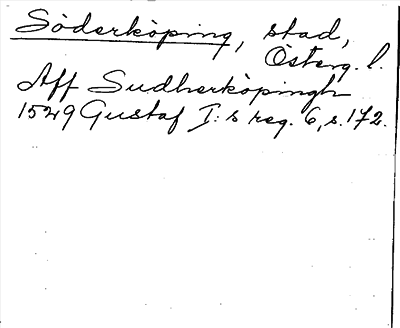 Söderköping, stad,
Österg. l.
Aff Sudherköpingh
1529 Gustaf I:s reg. 6, s. 172.